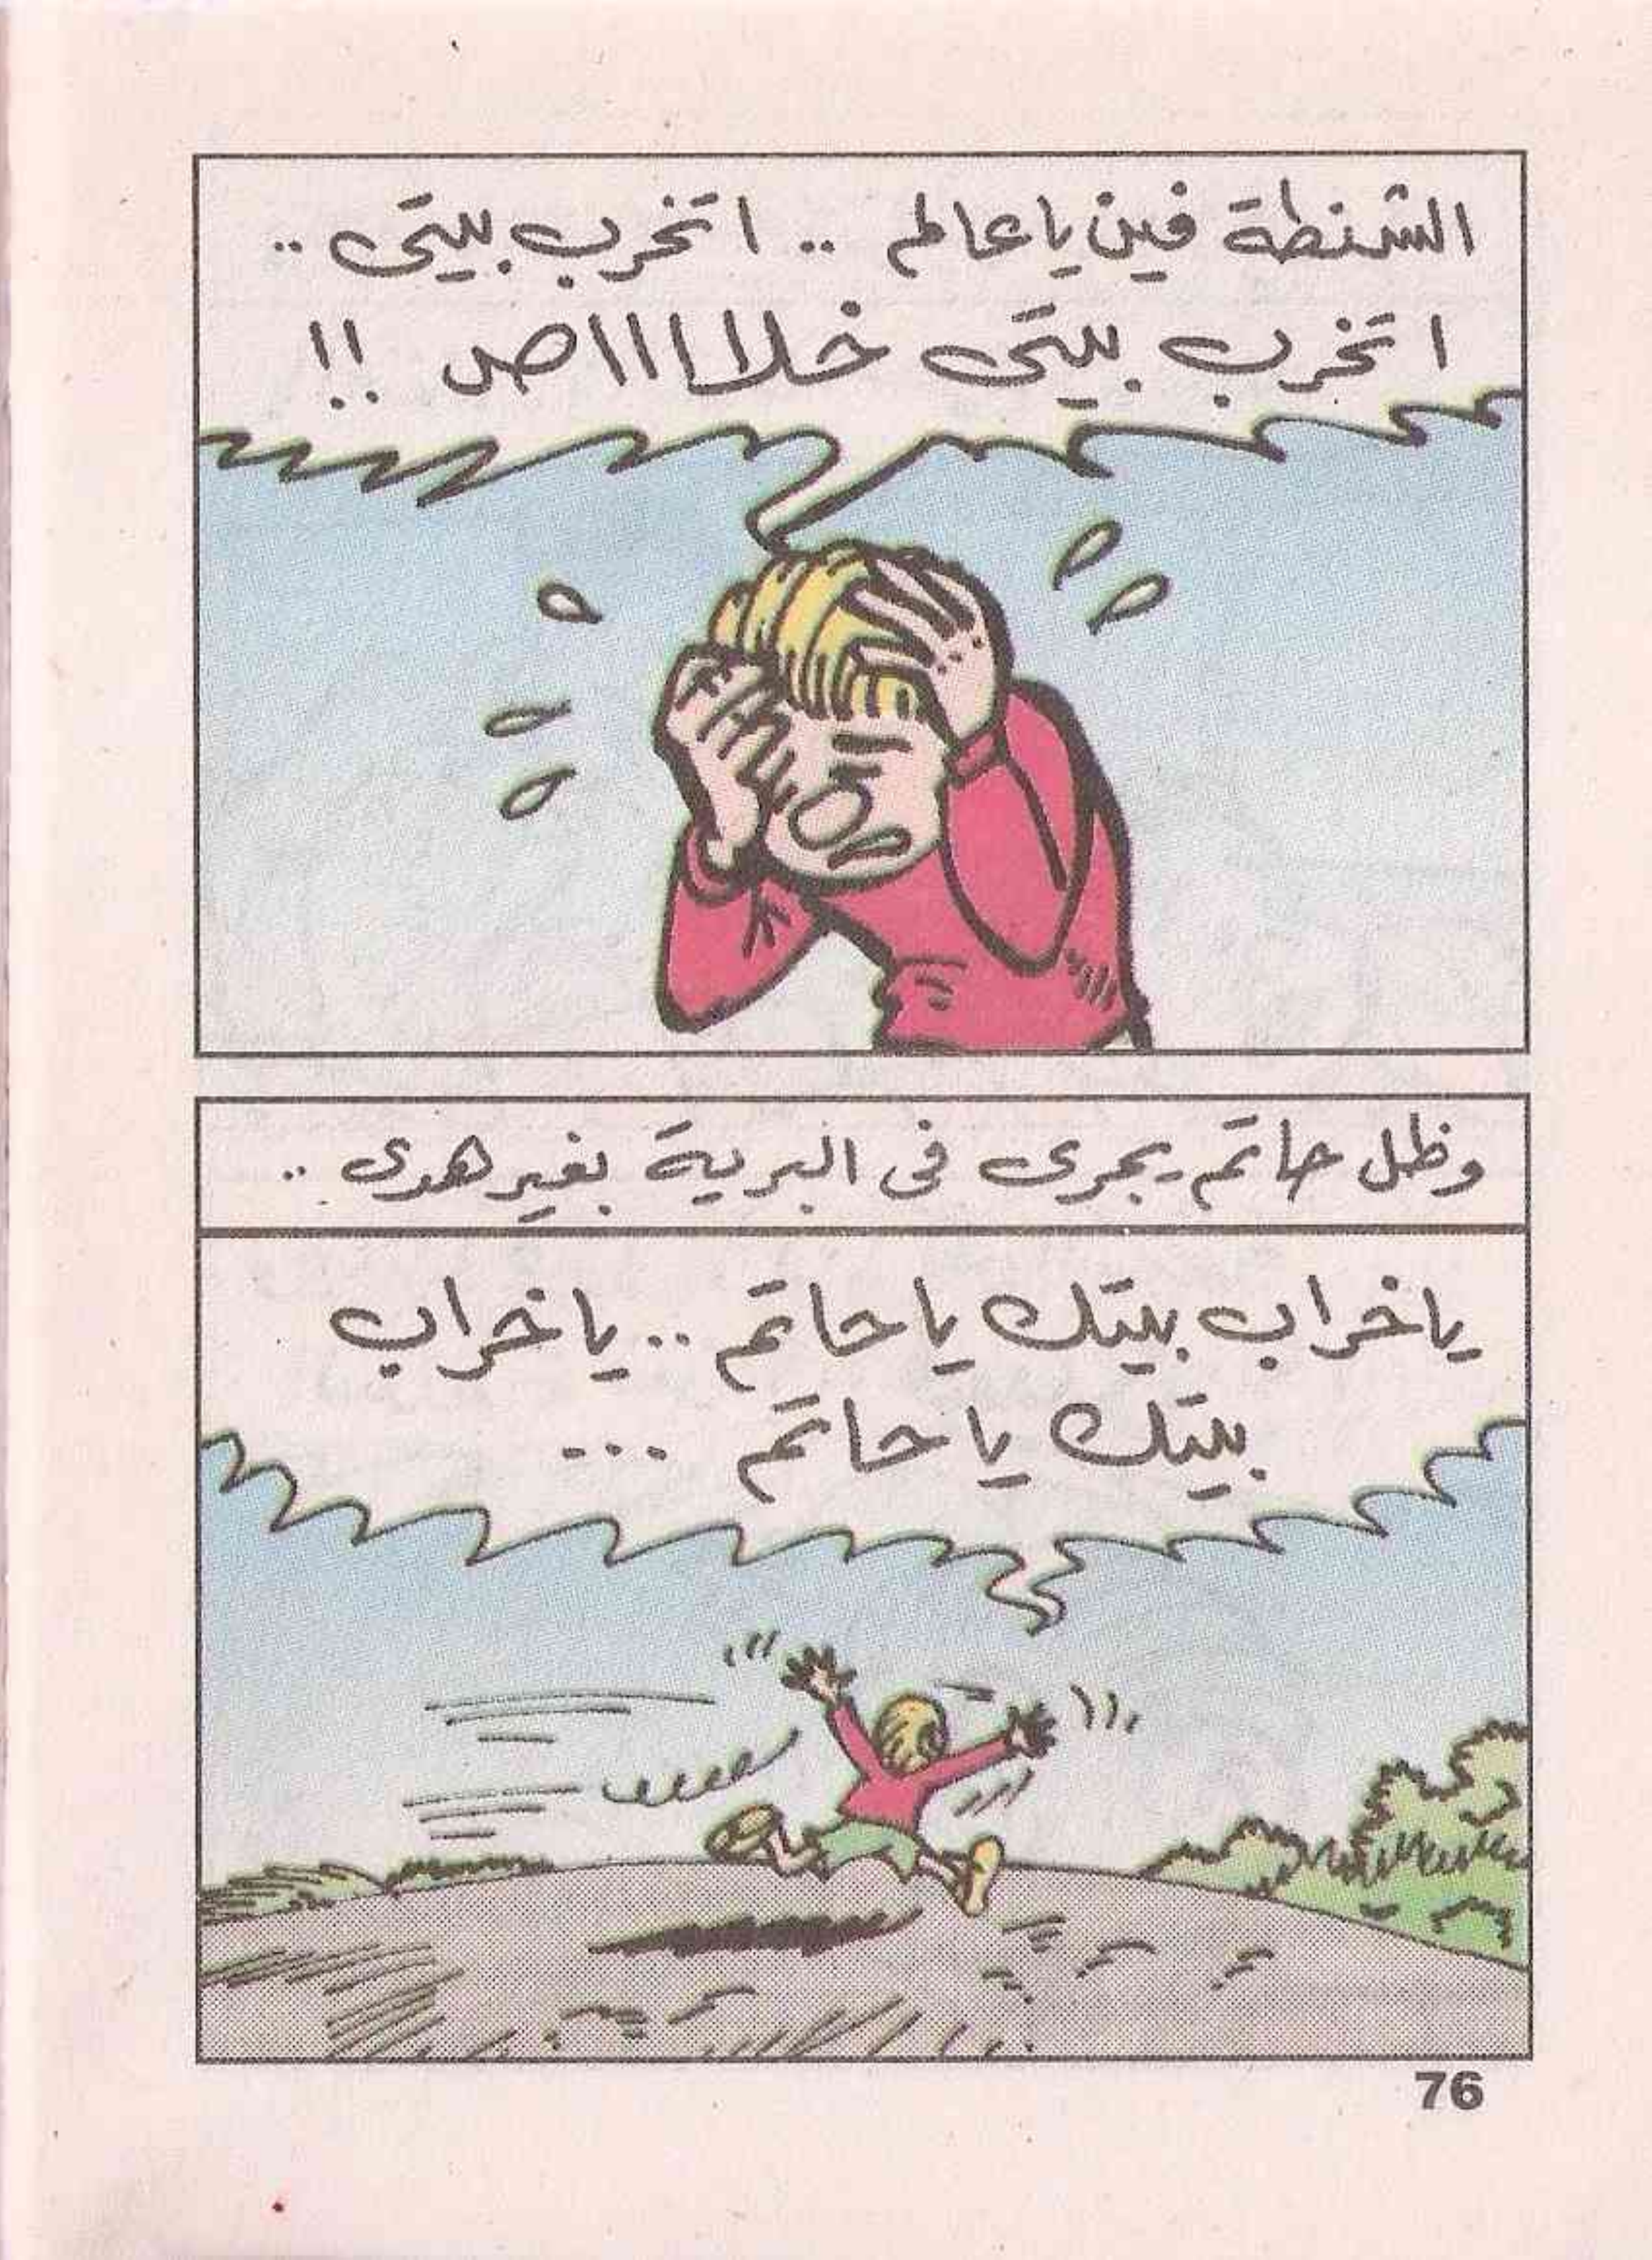 الشنطة فين يا عالم .. اتخرب بيتى ..
اتخرب بيتى خلاااااص !!
وظل حاتم يجرى فى البرية بغير هدى ..
يا خراب بيتك يا حاتم .. يا خراب
بيتك يا حاتم ...
76